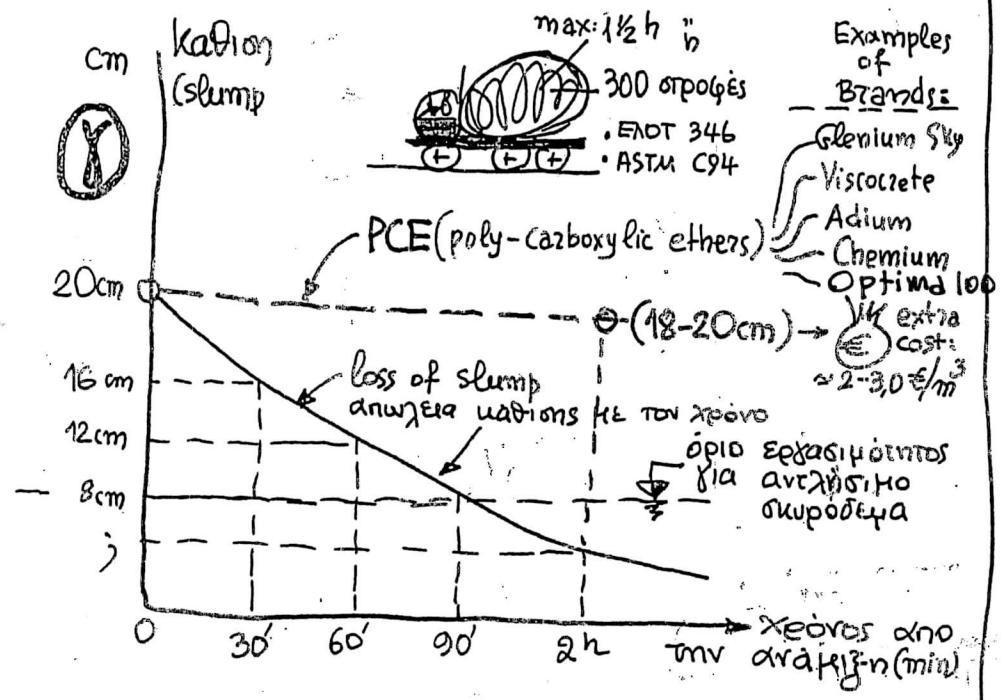 cm
κάθιση
(slump
γ
max: 1½ h ή
300 στροφές
• ΕΛΟΤ 346
• ASTM C94
Examples
of
Brands:
Glenium Sky
Viscocrete
Adium
Chemium
Optima 100
PCE (poly-carboxylic ethers)
20cm
(18-20cm)
extra
cost:
€
≈2-3,0 €/m³
16 cm
loss of slump
απώλεια κάθισης με τον χρόνο
12cm
όριο εργασιμότητος
για αντλήσιμο
σκυρόδεμα
8cm
;
0
30'
60'
90'
2h
χρόνος απο
την ανάμιξη (min)